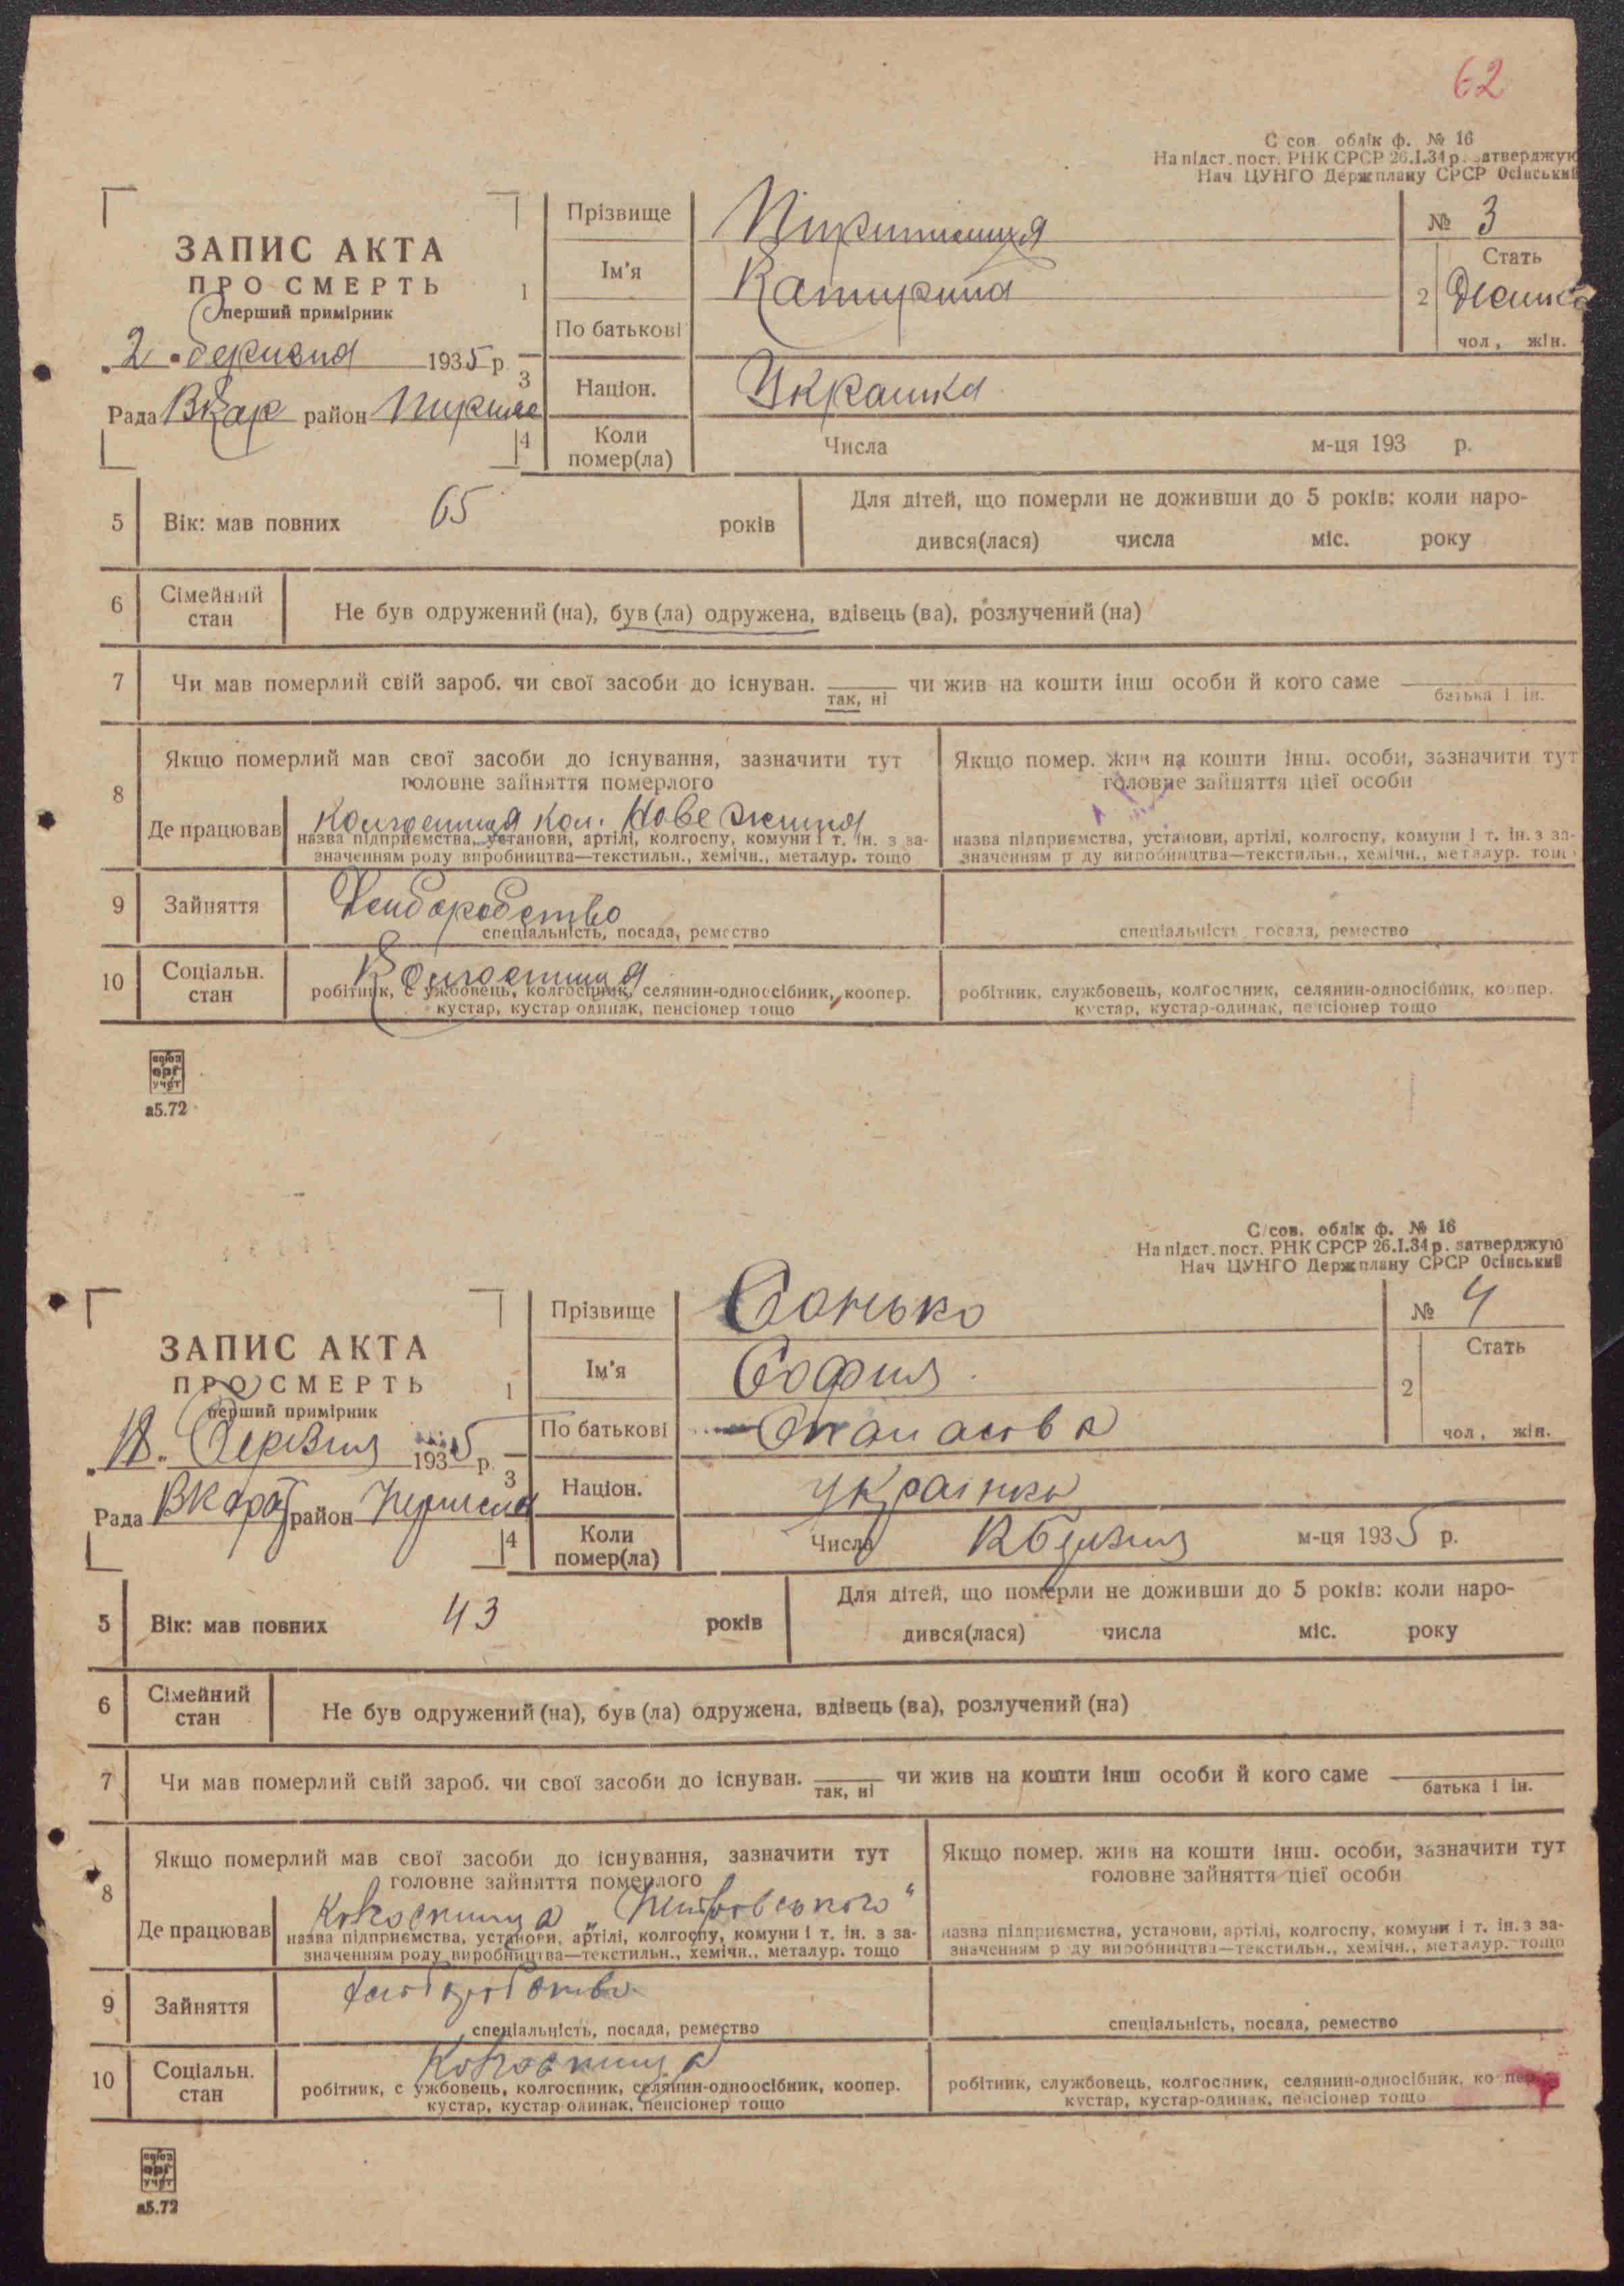 62
С сов. облік ф. № 16
На підст. пост. РНК СРСР 26.I.34 р. затверджую
Нач ЦУНГО Держплану СРСР Осінський
ЗАПИС АКТА
ПРО СМЕРТЬ
перший примірник
2 1935 р.
Рада район
1 Прізвище
№ 3
Ім'я Катирина
2 Стать
чол, жін.
По батькові
3 Націон. Украинка
4 Коли помер(ла) Числа м-ця 193 р.
5 Вік: мав повних 65 років
Для дітей, що померли не доживши до 5 років: коли наро-
дився(лася) числа міс. року
6 Сімейний стан Не був одружений (на), був (ла) одружена, вдівець (ва), розлучений (на)
7 Чи мав померлий свій зароб. чи свої засоби до існуван. так, ні чи жив на кошти інш особи й кого саме батька і ін.
8 Якщо померлий мав свої засоби до існування, зазначити тут
головне зайняття померлого
Якщо помер. жив на кошти інш. особи, зазначити тут
головне зайняття цієї особи
Де працював Колгоспниця кол. Нове
назва підприємства, установи, артілі, колгоспу, комуни і т. ін. з за-
значенням роду виробництва—текстильн., хемічн., металур. тощо
назва підприємства, установи, артілі, колгоспу, комуни і т. ін. з за-
значенням р ду виробництва—текстильн., хемічн., металур. тощ
9 Зайняття
спеціальність, посада, ремество
спеціальність посада, ремество
10 Соціальн. стан Колгоспниця
робітник, с ужбовець, колгоспник, селянин-одноосібник, коопер.
кустар, кустар одинак, пенсіонер тощо
робітник, службовець, колгоспник, селянин-односібник, коопер.
кустар, кустар-одинак, пенсіонер тощо
союз
орг
учёт
а5.72
С/сов. облік ф. № 16
На підст. пост. РНК СРСР 26.I.34 р. затверджую
Нач ЦУНГО Держплану СРСР Осінський
ЗАПИС АКТА
ПРО СМЕРТЬ
перший примірник
Березня 1935 р.
Рада район
1 Прізвище Сонько
№ 4
Ім'я София
2 Стать
чол, жін.
По батькові
3 Націон. Українка
4 Коли помер(ла) Числа м-ця 1935 р.
5 Вік: мав повних 43 років
Для дітей, що померли не доживши до 5 років: коли наро-
дився(лася) числа міс. року
6 Сімейний стан Не був одружений (на), був (ла) одружена, вдівець (ва), розлучений (на)
7 Чи мав померлий свій зароб. чи свої засоби до існуван. так, ні чи жив на кошти інш особи й кого саме батька і ін.
8 Якщо померлий мав свої засоби до існування, зазначити тут
головне зайняття померлого
Якщо помер. жив на кошти інш. особи, зазначити тут
головне зайняття цієї особи
Де працював
назва підприємства, установи, артілі, колгоспу, комуни і т. ін. з за-
значенням роду виробництва—текстильн., хемічн., металур. тощо
назва підприємства, установи, артілі, колгоспу, комуни і т. ін. з за-
значенням р ду виробництва—текстильн., хемічн., металур. тощо
9 Зайняття
спеціальність, посада, ремество
спеціальність, посада, ремество
10 Соціальн. стан
робітник, с ужбовець, колгоспник, селянин-одноосібник, коопер.
кустар, кустар одинак, пенсіонер тощо
робітник, службовець, колгоспник, селянин-односібник, ко пер.
кустар, кустар-одинак, пенсіонер тощо
союз
орг
учёт
а5.72